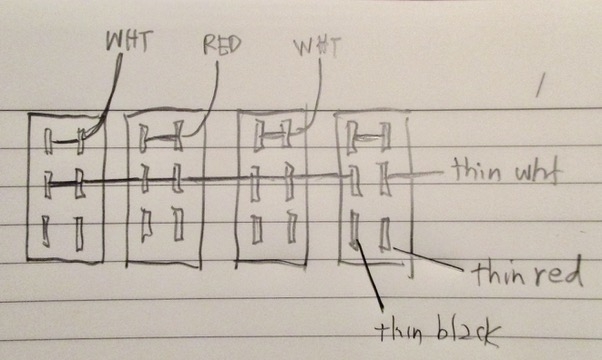 WHT RED WHT
thin wht
thin red
thin black